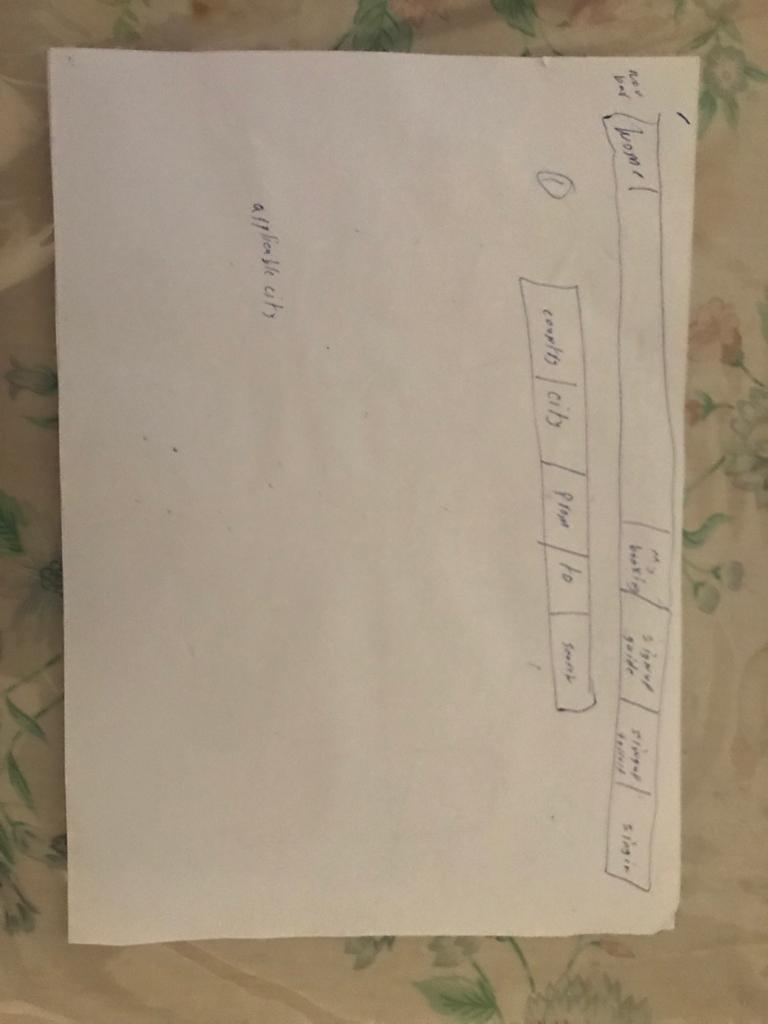 nav
bar
home
my
booking
signup
guide
signup
tourist
singin
1
country
city
from
to
search
applicable city